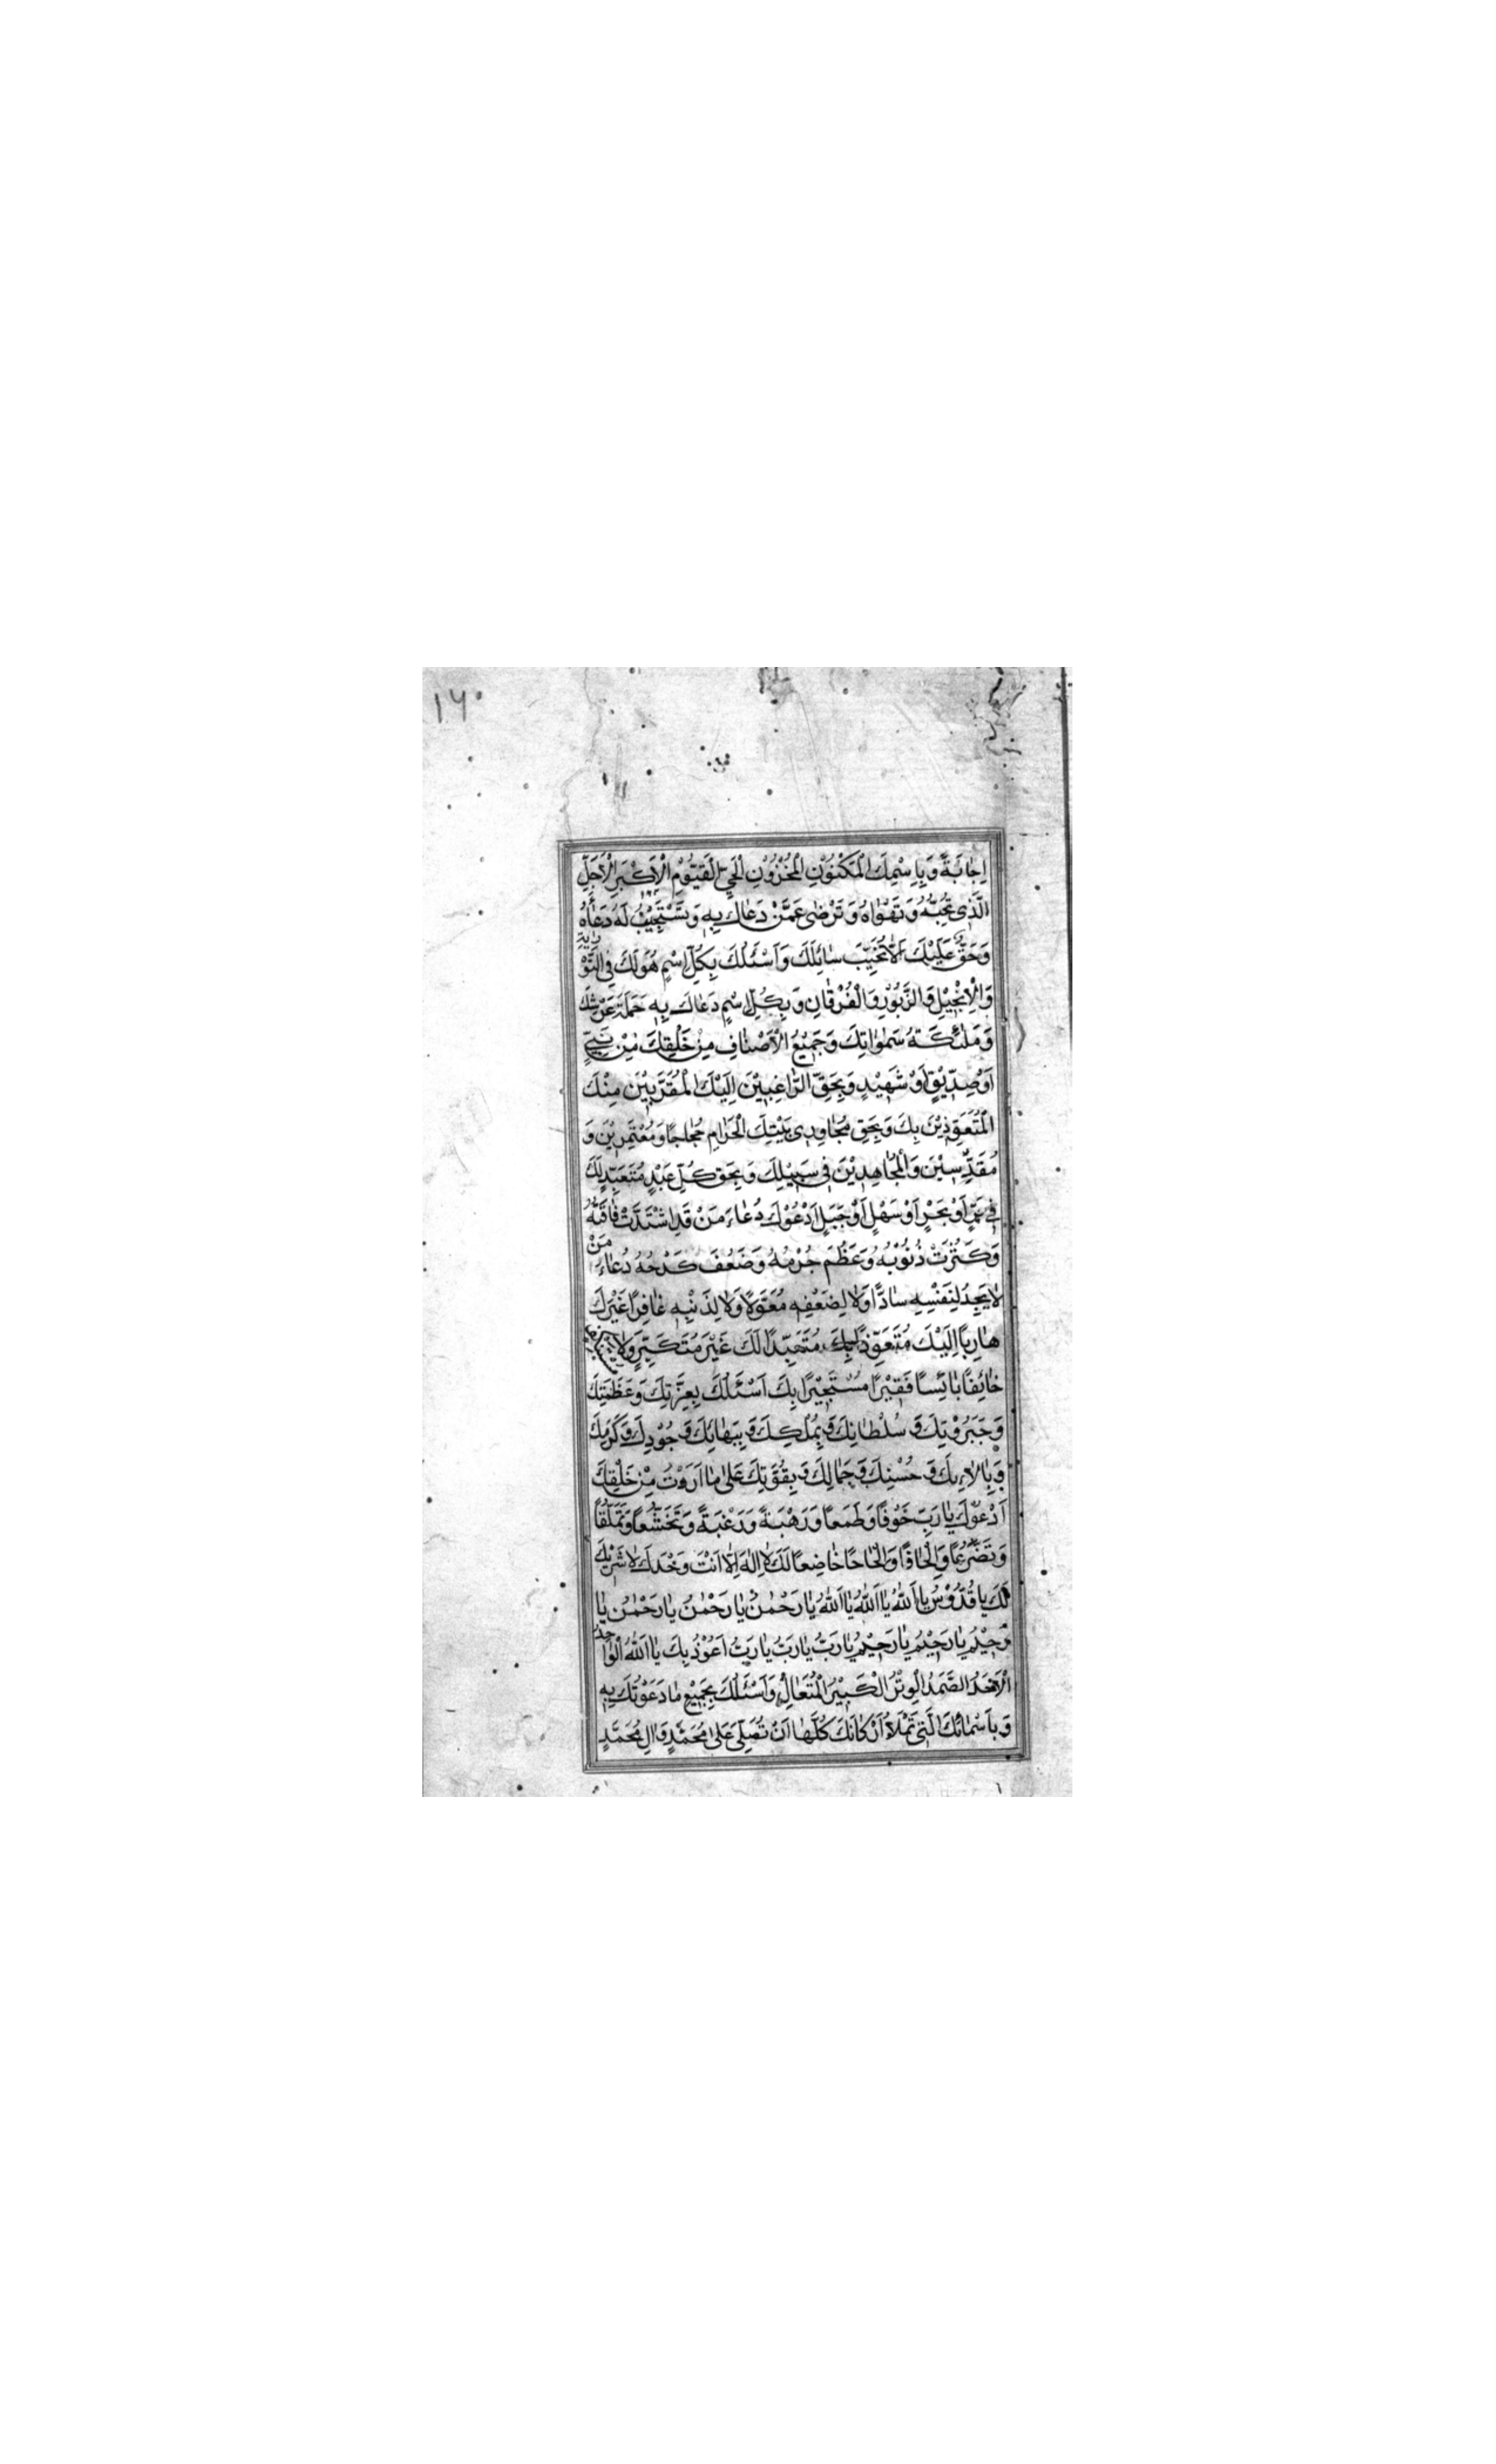 ١٦٠
اِجابَةً وَبِاِسْمِكَ الْمَكْنُوْنِ الْمَخْزُوْنِ الْحَيِّ الْقَيُّوْمِ الْاَكْبَرِ الْاَجَلِّ
الَّذى تُحِبُّهُ وَتَهْواهُ وَتَرْضى عَمَّنْ دَعاكَ بِهِ وَتَسْتَجيْبُ لَهُ دُعاءَهُ
وَحَقٌّ عَلَيْكَ اَلّا تُخَيِّبَ سائِلَكَ وَاَسْئَلُكَ بِكُلِّ اسْمٍ هُوَ لَكَ فِى التَّوْرٰيةِ
وَالْاِنْجيْلِ وَالزَّبُوْرِ وَالْفُرْقانِ وَبِكُلِّ اسْمٍ دَعاكَ بِهِ حَمَلَةُ عَرْشِكَ
وَمَلئِكَةُ سَمواتِكَ وَجَميْعُ الْاَصْنافِ مِنْ خَلْقِكَ مِنْ نَبِيٍّ
اَوْ صِدّيْقٍ اَوْ شَهيْدٍ وَبِحَقِّ الرّاغِبيْنَ اِلَيْكَ الْمُقَرَّبيْنَ مِنْكَ
الْمُتَعَوِّذيْنَ بِكَ وَبِحَقِّ مُجاوِرى بَيْتِكَ الْحَرامِ حُجّاجًا وَمُعْتَمِريْنَ وَ
مُقَدِّسيْنَ وَالْمُجاهِديْنَ فى سَبيْلِكَ وَبِحَقِّ كُلِّ عَبْدٍ مُتَعَبِّدٍ لَكَ
فى بَرٍّ اَوْ بَحْرٍ اَوْ سَهْلٍ اَوْ جَبَلٍ اَدْعُوْكَ دُعاءَ مَنْ قَدِ اشْتَدَّتْ فاقَتُهُ
وَكَثُرَتْ ذُنُوْبُهُ وَعَظُمَ جُرْمُهُ وَضَعُفَ كَدْحُهُ دُعاءَ مَنْ
لا يَجِدُ لِنَفْسِهِ سادًّا وَلا لِضَعْفِهِ مُعَوَّلًا وَلا لِذَنْبِهِ غافِرًا غَيْرَكَ
هارِبًا اِلَيْكَ مُتَعَوِّذًا بِكَ مُتَعَبِّدًا لَكَ غَيْرَ مُتَكَبِّرٍ وَلا
خائِفًا بائِسًا فَقيْرًا مُسْتَجيْرًا بِكَ اَسْئَلُكَ بِعِزَّتِكَ وَعَظَمَتِكَ
وَجَبَرُوْتِكَ وَسُلْطانِكَ وَبِمُلْكِكَ وَبِبَهائِكَ وَجُوْدِكَ وَكَرَمِكَ
وَبِالاءِكَ وَحُسْنِكَ وَجَمالِكَ وَبِقُوَّتِكَ عَلى ما اَرَدْتَ مِنْ خَلْقِكَ
اَدْعُوْكَ يا رَبِّ خَوْفًا وَطَمَعًا وَرَهْبَةً وَرَغْبَةً وَتَخَشُّعًا وَتَمَلُّقًا
وَتَضَرُّعًا وَاِلْحافًا وَاِلْحاحًا خاضِعًا لَكَ لا اِلهَ اِلّا اَنْتَ وَحْدَكَ لا شَريْكَ
لَكَ يا قُدُّوْسُ يا اَللهُ يا اَللهُ يا اَللهُ يا رَحْمنُ يا رَحْمنُ يا رَحْمنُ يا
رَحيْمُ يا رَحيْمُ يا رَحيْمُ يا رَبُّ يا رَبُّ يا رَبُّ اَعُوْذُ بِكَ يا اَللهُ الْواحِدُ
الْاَحَدُ الصَّمَدُ الْوِتْرُ الْكَبيْرُ الْمُتَعالِ وَاَسْئَلُكَ بِجَميْعِ ما دَعَوْتُكَ بِهِ
وَبِاَسْمائِكَ الَّتى تَمْلَاُ اَرْكانَكَ كُلَّها اَنْ تُصَلِّىَ عَلى مُحَمَّدٍ وَالِ مُحَمَّدٍ